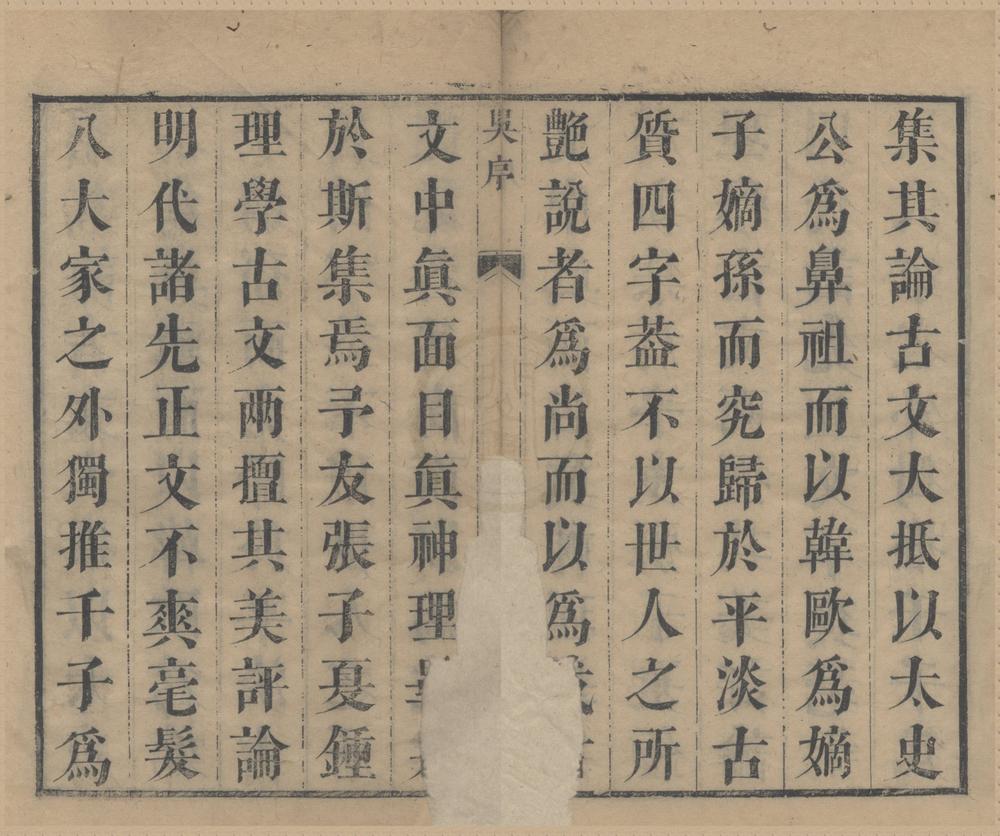 集其論古文大抵以太史
公爲鼻祖而以韓歐爲嫡
子嫡孫而究歸於平淡古
質四字葢不以世人之所
艶說者爲尚而以爲
吳序
文中眞面目眞神理
於斯集焉予友張子夏鍾
理學古文兩擅其美評論
明代諸先正文不爽毫髮
八大家之外獨推千子爲